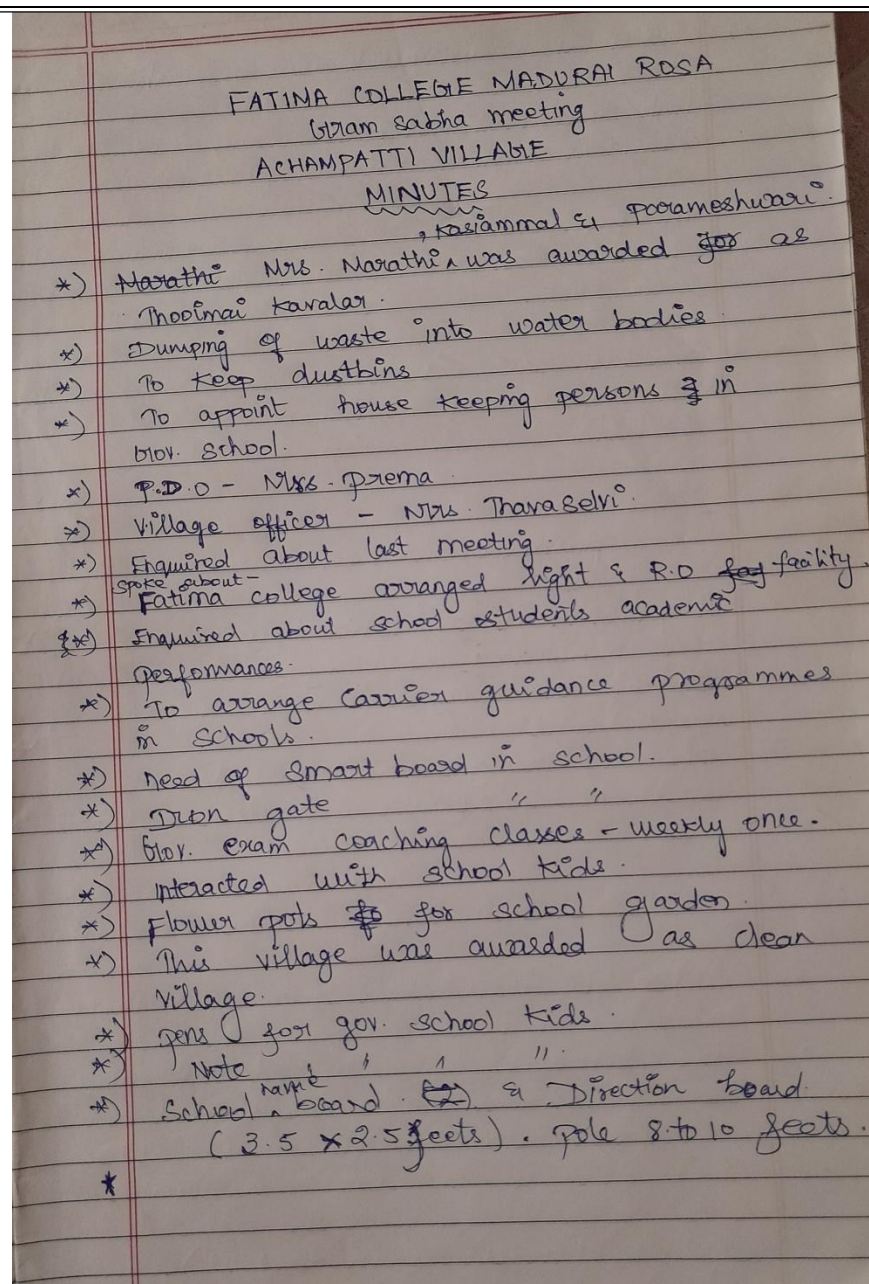 FATIMA COLLEGE MADURAI ROSA
Gram sabha meeting
ACHAMPATTI VILLAGE
MINUTES
, Kasiammal & Parameshwari.
*) Marathi Mrs. Marathi ^ was awarded for as
Thooimai Kavalar.
*) Dumping of waste into water bodies
*) To keep dustbins
*) To appoint house keeping persons in
Gov. School.
*) P.D.O - Mrs. Prema
*) Village officer - Mrs. Thavaselvi.
*) Enquired about last meeting.
spoke about -
*) Fatima college arranged light & R.O facility.
*) Enquired about school students academic
performances.
*) To arrange Carrier guidance programmes
in schools.
*) need of Smart board in school.
*) Iron gate " "
*) Gov. exam coaching classes - weekly once.
*) Interacted with school kids.
*) Flower pots for school garden.
*) This village was awarded as clean
village.
*) pens for gov. school kids.
*) Note " " ".
name
*) School ^ board. & Direction board.
(3.5 x 2.5 feets). Pole 8 to 10 feets.
*